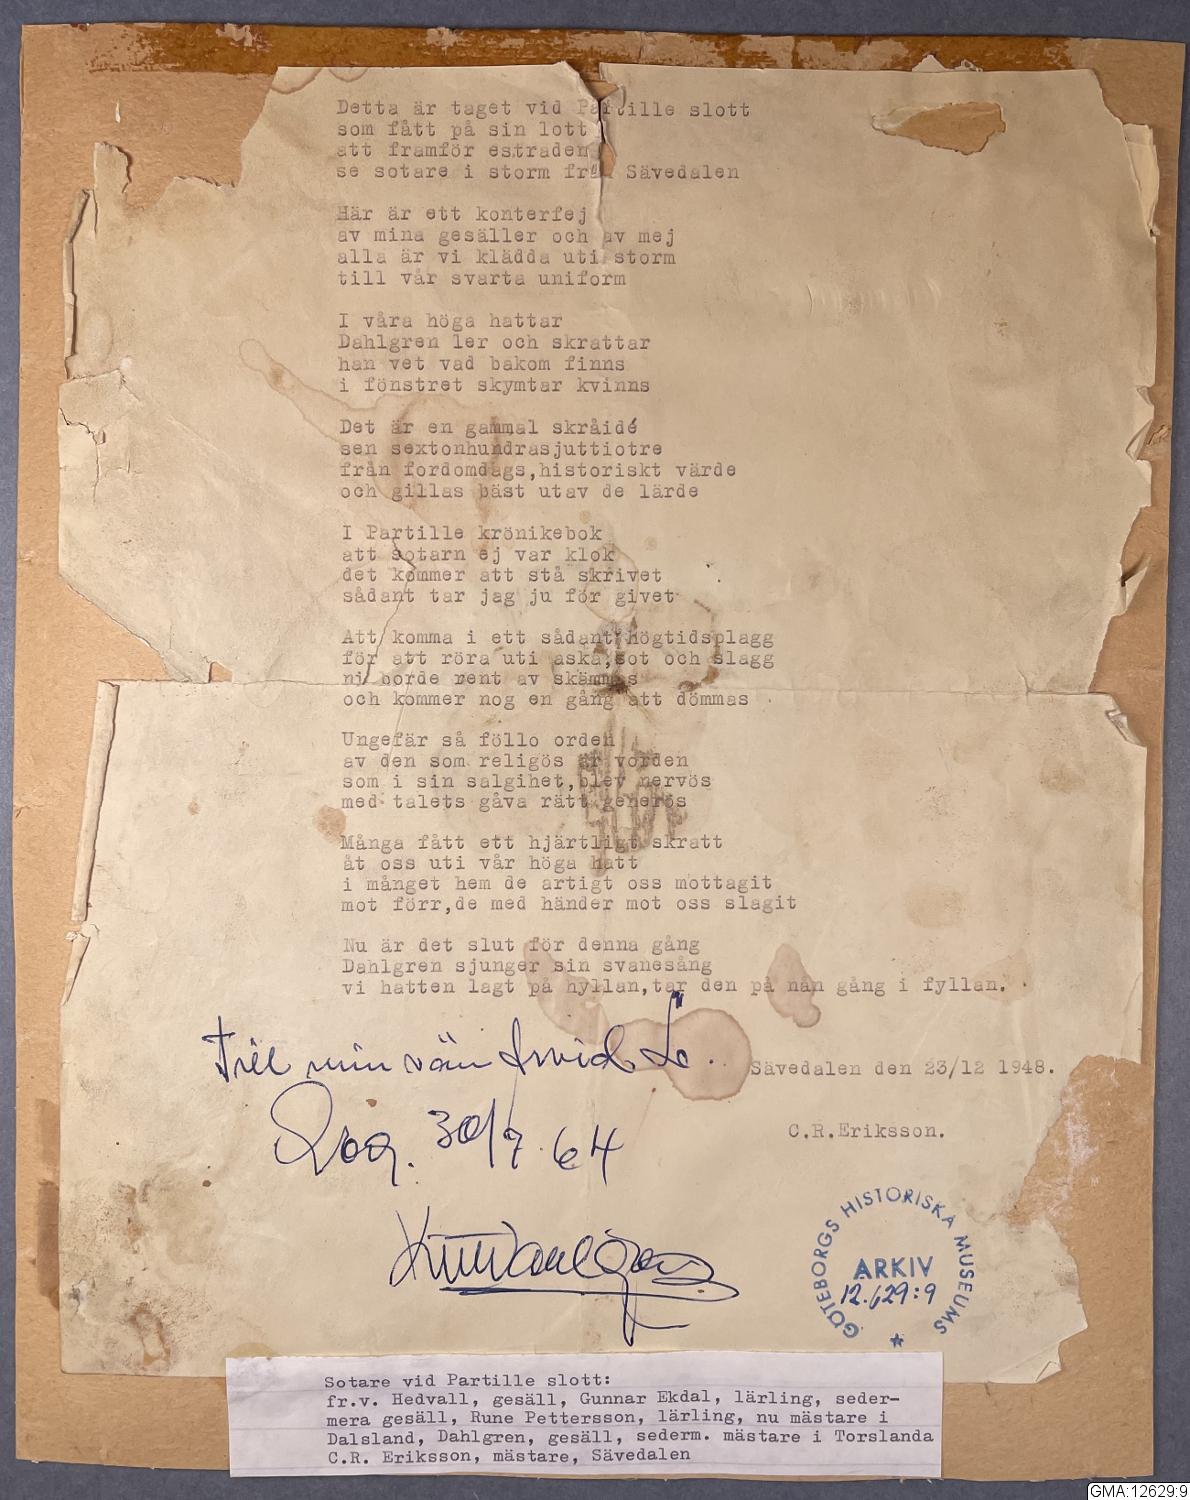 Detta är taget vid Partille slott
som fått på sin lott
att framför estraden
se sotare i storm från Sävedalen
Här är ett konterfej
av mina gesäller och av mej
alla är vi klädda uti storm
till vår svarta uniform
I våra höga hattar
Dahlgren ler och skrattar
han vet vad bakom finns
i fönstret skymtar kvinns
Det är en gammal skråidé
sen sextonhundrasjuttiotre
från fordomdags,historiskt värde
och gillas bäst utav de lärde
I Partille krönikebok
att sotarn ej var klok
det kommer att stå skrivet
sådant tar jag ju för givet
Att komma i ett sådant högtidsplagg
för att röra uti aska,sot och slagg
ni borde rent av skämmas
och kommer nog en gång att dömmas
Ungefär så föllo orden
av den som religös är vorden
som i sin salgihet,blev nervös
med talets gåva rätt generös
Många fått ett hjärtligt skratt
åt oss uti vår höga hatt
i månget hem de artigt oss mottagit
mot förr,de med händer mot oss slagit
Nu är det slut för denna gång
Dahlgren sjunger sin svanesång
vi hatten lagt på hyllan,tar den på nån gång i fyllan.
Till min vän Arvid
Sävedalen den 23/12 1948.
30/9 64
C.R.Eriksson.
GÖTEBORGS HISTORISKA MUSEUMS
ARKIV
12.629:9
Sotare vid Partille slott:
fr.v. Hedvall, gesäll, Gunnar Ekdal, lärling, seder-
mera gesäll, Rune Pettersson, lärling, nu mästare i
Dalsland, Dahlgren, gesäll, sederm. mästare i Torslanda
C.R. Eriksson, mästare, Sävedalen
GMA:12629:9